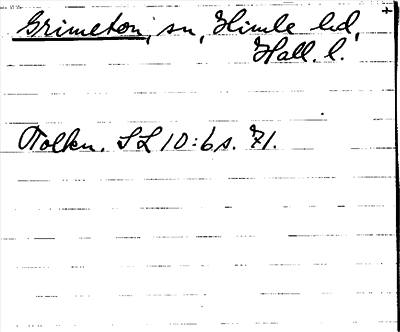 Grimeton, sn, Himle hd,
Hall. l.
Tolkn. SL 10:6 s. 71.